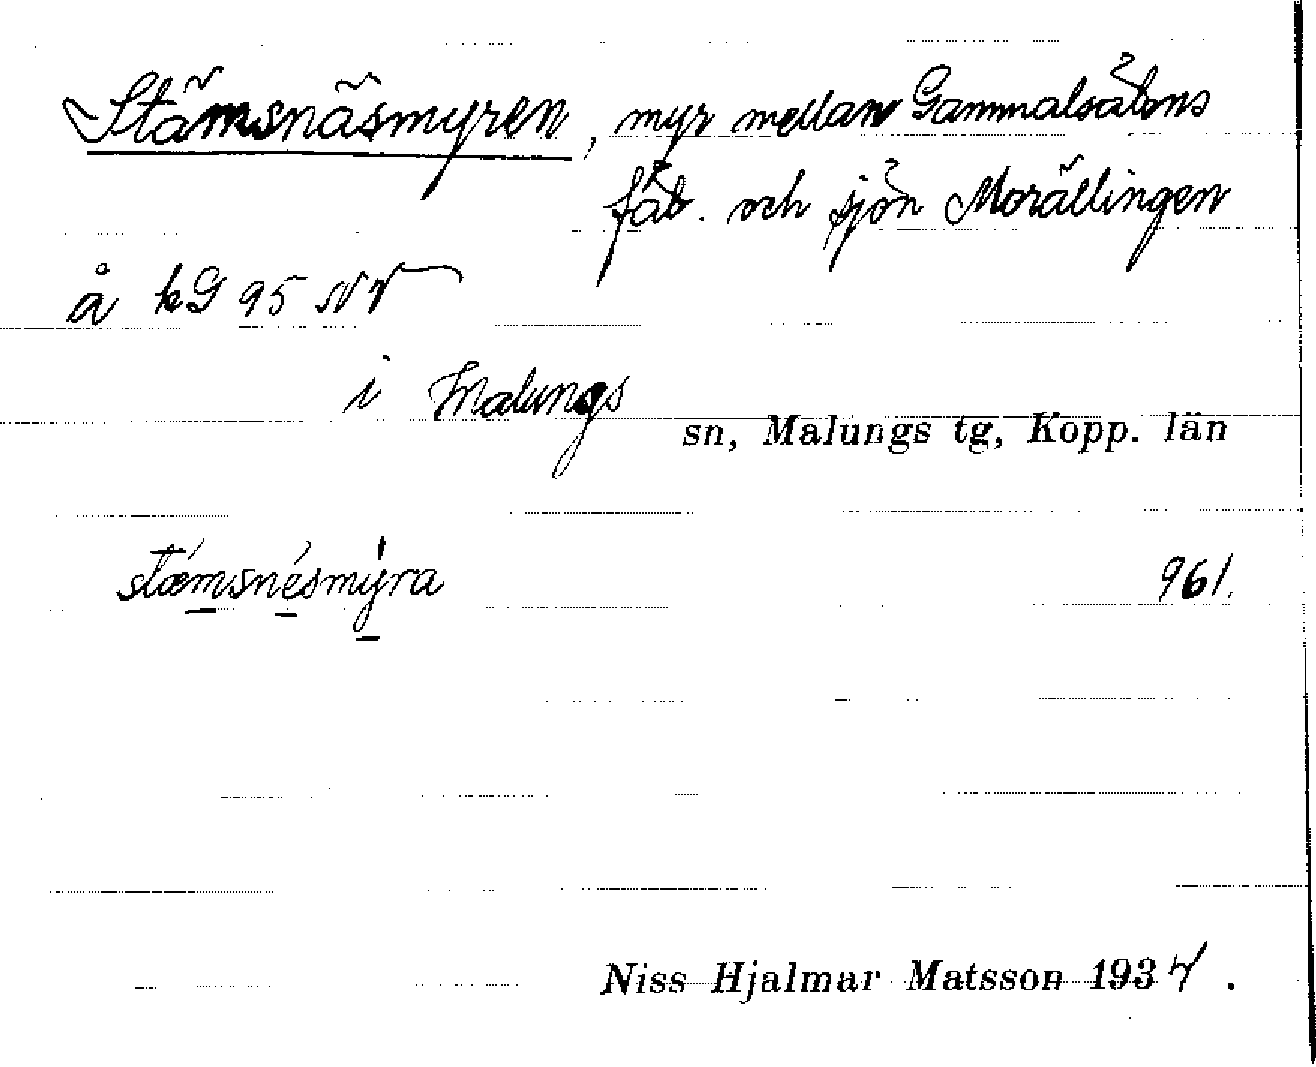 Stämsnäsmyren, myr mellan Gammalsätens
fäb. och sjön Morällingen
å kG 95 NV
i Malungs sn, Malungs tg, Kopp. län
stæmsnésmýra 961.
Niss Hjalmar Matsson 1934.